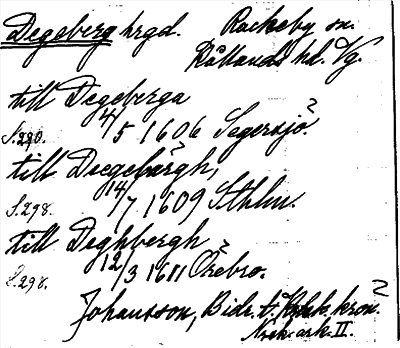 Degeberg hrgd. Rackeby sn.
Kållands hd. Vg.
till Degeberga
S.290. 4/5 1606 Segersjö?
till Deegebärgh,
S.298. 14/7 1609 Sthlm.
till Deghbergh
S.298. 12/3 1611 Örebro.
Johansson, Bidr. t. kron.
Nrek. ark. II.